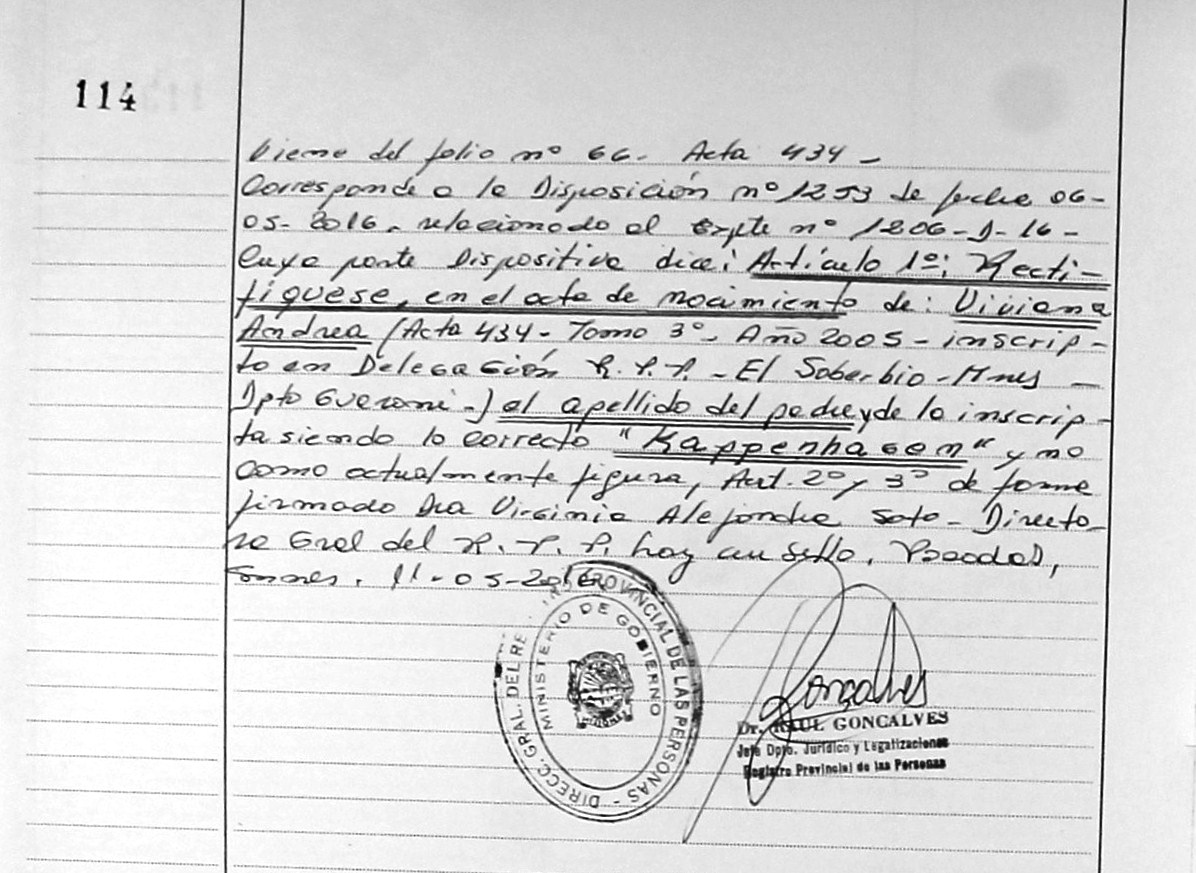 114
Viene del folio nº 66. Acta 434 -
Corresponde a la Disposición nº 1253 de fecha 06-
05-2016. relacionado al Expte nº 1206-J-16-
Cuya parte Dispositiva dice: Artículo 1º: Recti-
fíquese, en el acta de nacimiento de: Viviana
Andrea (Acta 434- Tomo 3º- Año 2005- inscrip-
to en Delegación R.P.P. - El Soberbio - Mnes -
Dpto Guarani-) el apellido del padre y de la inscrip-
ta siendo lo correcto "Kappenhagen" y no
como actualmente figura, Art. 2º y 3º de forma
firmado Dra Virginia Alejandra Soto - Directo-
ra Gral del R.P.P. hay un sello. Posadas,
11-05-2016
DIRECC. GRAL. DEL REGISTRO PROVINCIAL DE LAS PERSONAS -
MINISTERIO DE GOBIERNO
MISIONES
Goncalves
Dr. RAUL GONCALVES
Jefe Dpto. Jurídico y Legalizaciones
Registro Provincial de las Personas